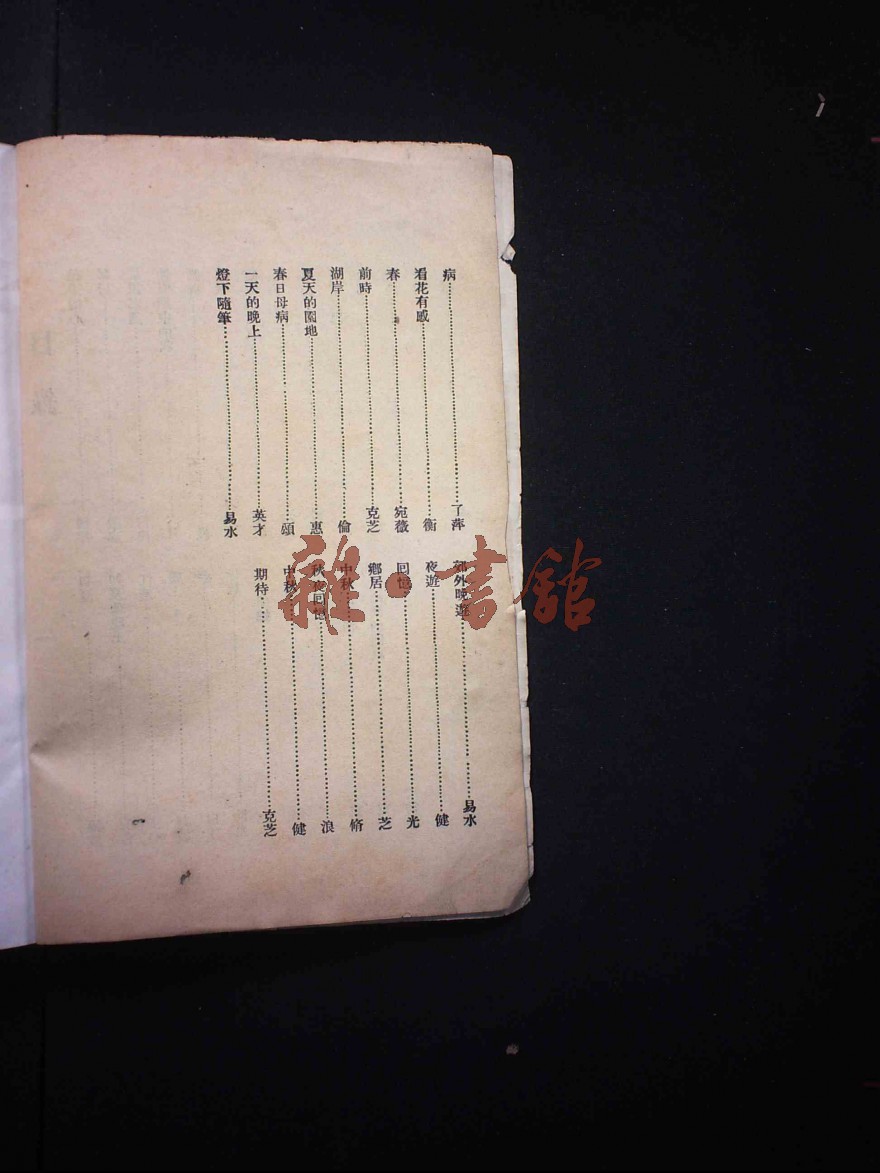 病……了萍
看花有感……衡
春……宛薇
前時……克芝
湖岸……倫
夏天的園地……惠
春日母病……頌
一天的晚上……英才
燈下隨筆……易水
郊外晚遊……易水
夜遊……健
回憶……光
鄉居……芝
中秋……脩
秋夜回憶……浪
中秋……健
期待……克芝
雜·書館